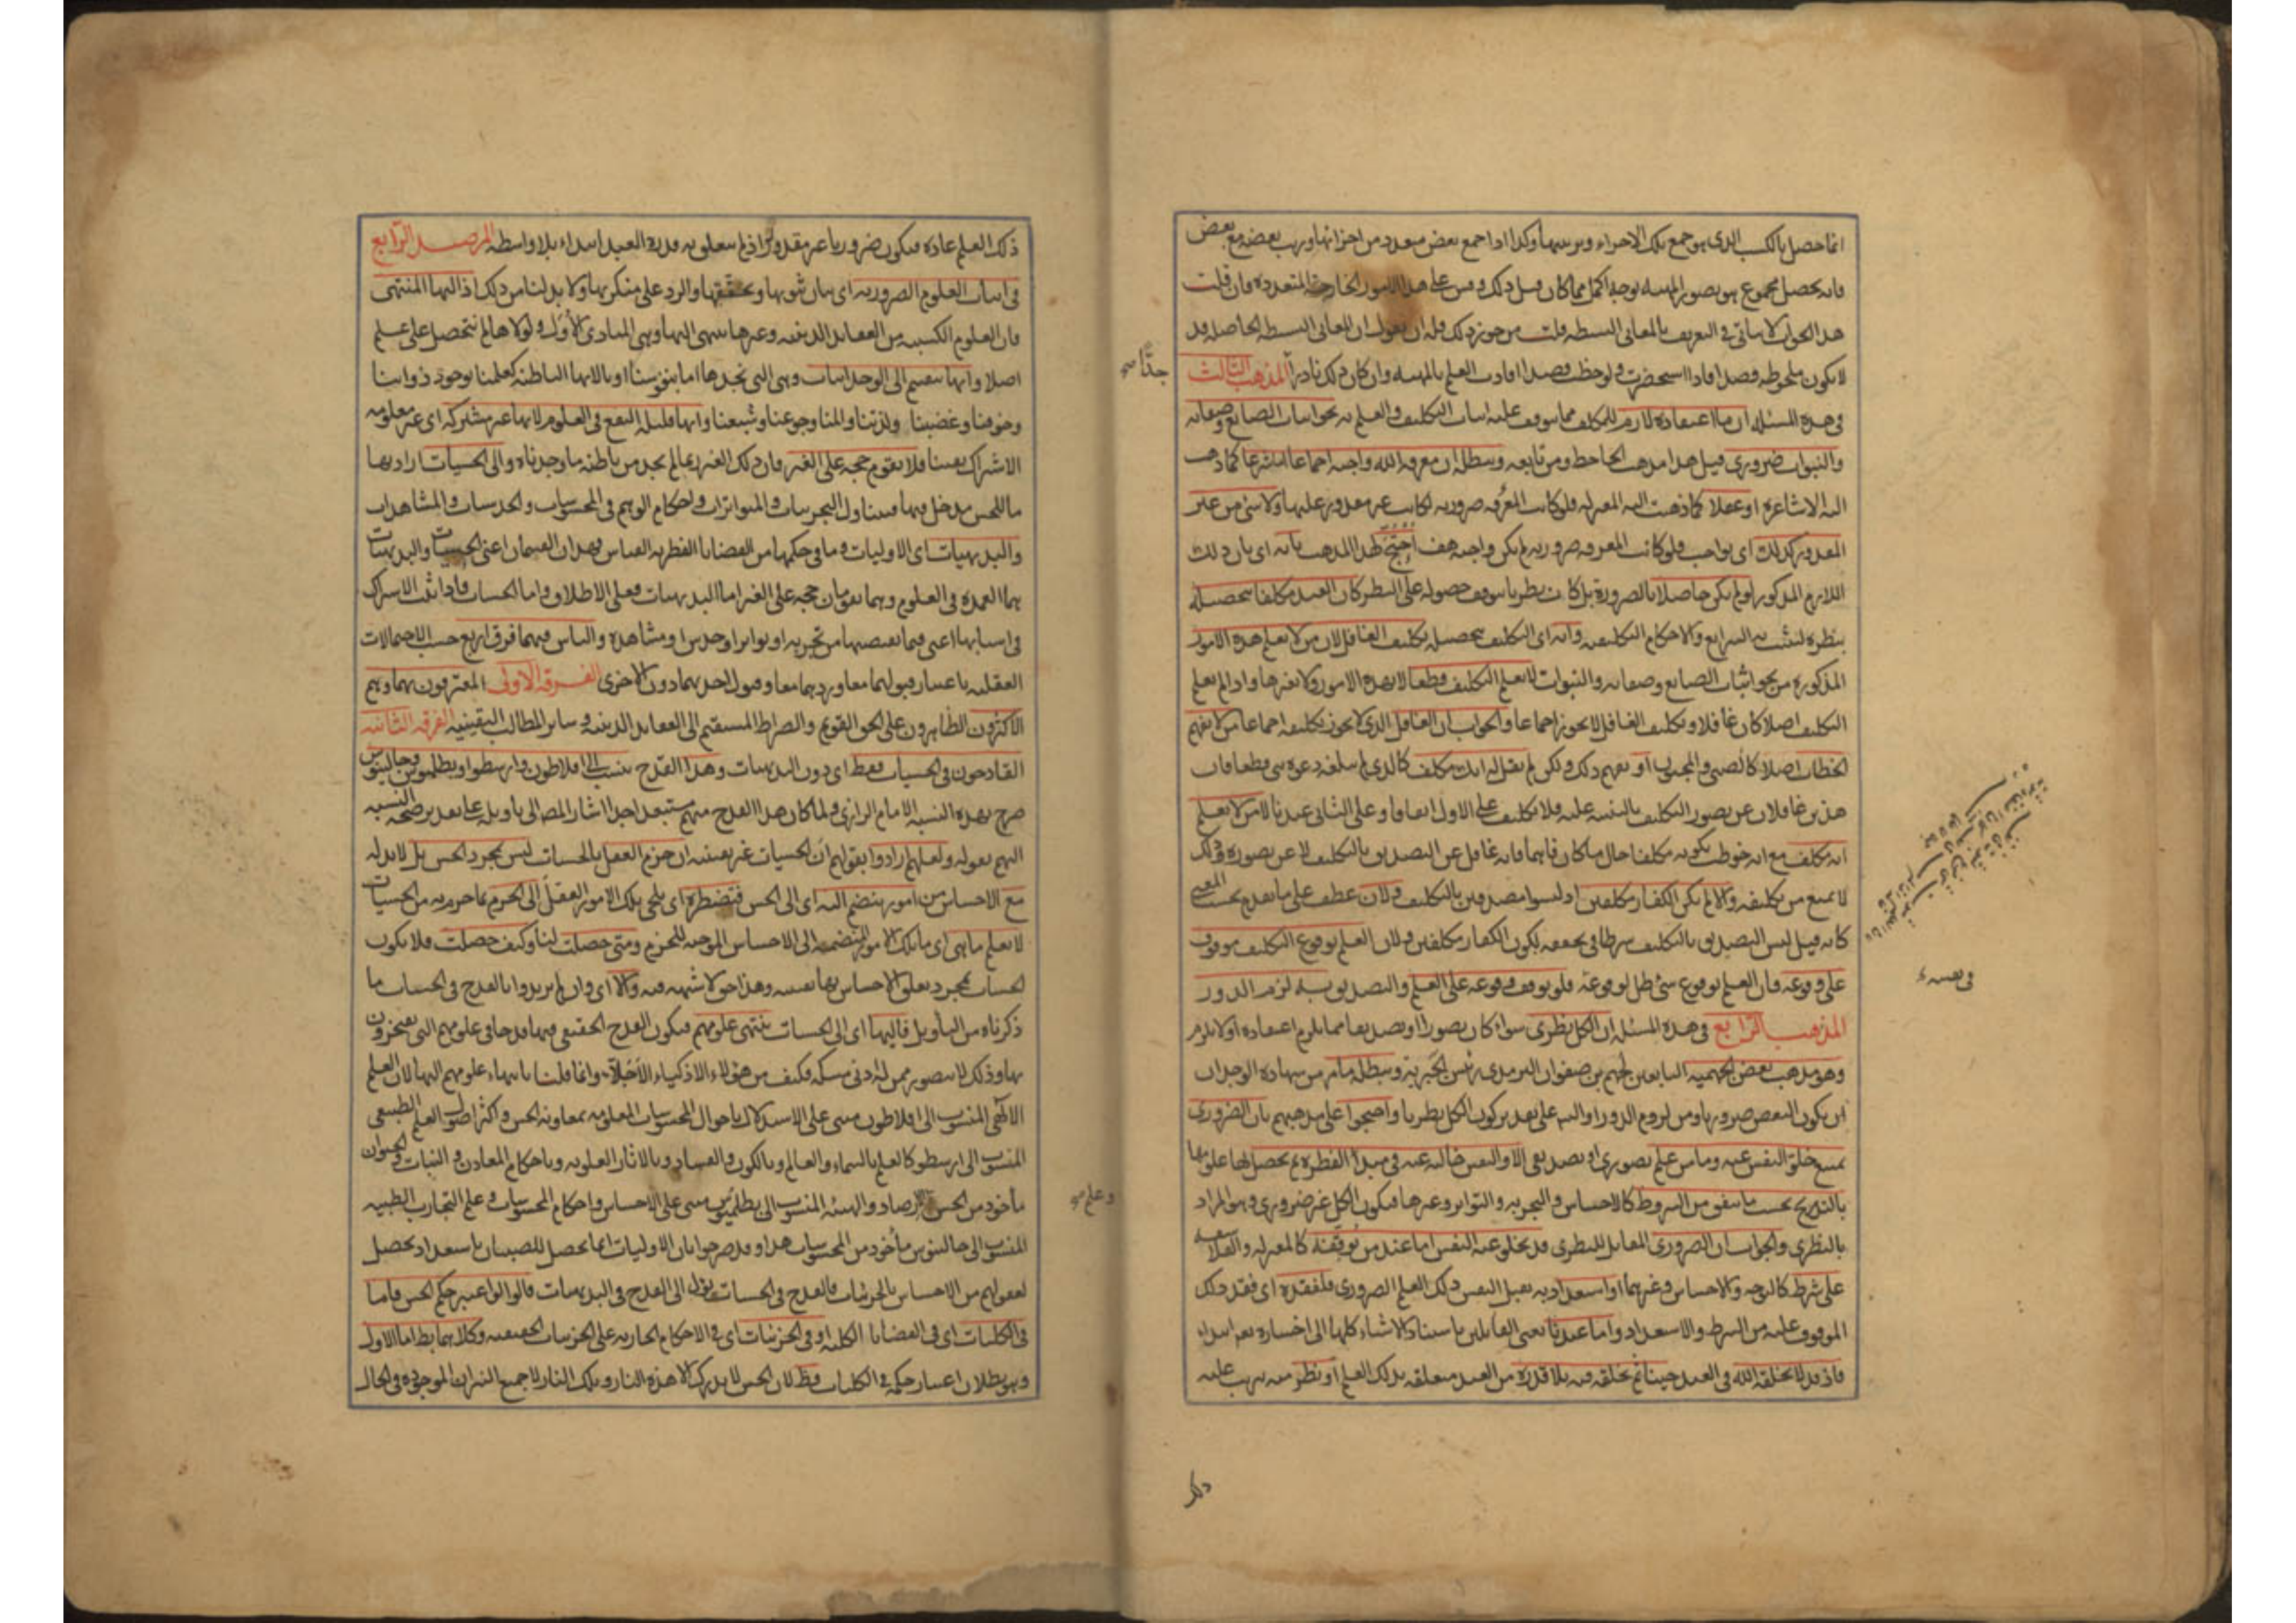 انما حصل بالكسب الذي هو جمع تلك الاجزاء وترتيبها وكذا اذا جمع بعض متعدد من اجزائها ورتب بعضه مع بعض
فانه يحصل مجموع هو تصور المهية بوجه اكمل مما كان قبل ذلك وقس على هذا الامور الخارجة المتعددة فان قلت
هذا الجواب لا يتأتى في التعريف بالمعاني البسيطة قلت من جوز ذلك فله ان يقول ان المعاني البسيطة الحاصلة قد
لا يكون ملحوظة قصدا فاذا استحضرت ولوحظت قصدا افادت العلم بالمهية وان كان ذلك نادرا المذهب الثالث
جدا
في هذه المسئلة ان ما اعتقاده لازم للمكلف مما يتوقف عليه اثبات التكليف والعلم به نحو اثبات الصانع وصفاته
والنبوات ضروري قيل هذا مذهب الجاحظ ومن تابعه ويبطله ان معرفة الله واجبة اجماعا اما شرعا كما ذهب
اليه الاشاعرة او عقلا كما ذهبت اليه المعتزلة فلو كانت المعرفة ضرورية لكانت غير مقدور عليها ولا شئ من غير
المقدور كذلك اى بواجب فلو كانت المعرفة ضرورية لم يكن واجبة هف احتج لهذا المذهب بانه اى بان ذلك
اللازم المذكور لو لم يكن حاصلا بالضرورة بل كان نظريا يتوقف حصوله على النظر كان العبد مكلفا بتحصيله
بنظره لتثبت به الشرايع والاحكام التكليفية وانه اى التكليف بتحصيله تكليف الغافل لان من لا يعلم هذه الامور
المذكورة من نحو اثبات الصانع وصفاته والنبوات لا يعلم التكليف قطعا لا بهذه الامور ولا بغيرها واذا لم يعلم
التكليف اصلا كان غافلا وتكليف الغافل لا يجوز اجماعا والجواب ان الغافل الذي لا يجوز تكليفه اجماعا من لا يفهم
الخطاب اصلا كالصبي والمجنون او يفهم ذلك ولكن لم يقل له انك مكلف كالذي لم يبلغه دعوة نبي قطعا فان
هذين غافلان عن تصور التكليف بالتنبيه عليه فلا تكليف على الاول اتفاقا وعلى الثاني عندنا لا من لا يعلم
انه مكلف مع انه خوطب بكونه مكلفا حال ما كان فاهما فانه غافل عن التصديق بالتكليف لا عن تصوره وذلك
لا يمنع من تكليفه والا لم يكن الكفار مكلفين اذ ليسوا مصدقين بالتكليف ولان عطف على ما تقدم بحسب المعنى
كانه قيل ليس التصديق بالتكليف شرطا في تحققه لكون الكفار مكلفين ولان العلم بوقوع التكليف موقوف
على وقوعه فان العلم بوقوع شئ ظل لوقوعه فلو توقف وقوعه على العلم والتصديق به لزم الدور
في نفسه
المذهب الرابع في هذه المسئلة ان الكل نظري سواء كان تصورا او تصديقا مما يلزم اعتقاده او لا يلزم
وهو مذهب بعض الجهمية التابعين لجهم بن صفوان الترمذي رئيس الجبرية ويبطله ما مر من شهادة الوجدان
ان يكون البعض ضروريا ومن لزوم الدور او التسلسل على تقدير كون الكل نظريا واحتجوا على مذهبهم بان الضروري
يمتنع خلو النفس عنه وما من علم تصوري او تصديقي الا والنفس خالية عنه في مبدأ الفطرة ثم يحصل لها علومها
بالتدريج بحسب ما يتفق من الشروط كالاحساس والتجربة والتواتر وغيرها فيكون الكل غير ضروري وهو المراد
بالنظري والجواب ان الضروري المقابل للنظري قد يخلو عنه النفس اما عند من يوقفه كالمعتزلة والفلاسفة
على شرط كالتوجه والاحساس وغيرهما او استعداد به يقبل النفس ذلك العلم الضروري فلفقده اى فقد ذلك
الموقوف عليه من الشرط والاستعداد واما عندنا يعني القائلين باستناد الاشياء كلها الى اختياره تعالى ابتداء
فاذ قد لا يخلقه الله في العبد حينا ثم يخلقه فيه بلا قدرة من العبد متعلقة بذلك العلم او نظر منه يترتب عليه
ذلك
ذلك العلم عادة فيكون ضروريا غير مقدور اذ لم يتعلق به قدرة العبد ابتداء بلا واسطة المرصد الرابع
في اثبات العلوم الضرورية اى بيان ثبوتها وتحققها والرد على منكريها ولا بد لنا من ذلك اذ اليها المنتهى
فان العلوم الكسبية من العقايد الدينية وغيرها ينتهي اليها وهي المبادي الأول ولولاها لم نتحصل على علم
اصلا وانها تنقسم الى الوجدانيات وهي التي نجدها اما بنفوسنا او بالاتها الباطنة كعلمنا بوجود ذواتنا
وخوفنا وغضبنا ولذتنا والمنا وجوعنا وشبعنا وانها قليلة النفع في العلوم لانها غير مشتركة اى غير معلومة
الاشتراك يقينا فلا يقوم حجة على الغير فان ذلك الغير ربما لم يجد من باطنه ما وجدناه والى الحسيات اراد بها
ما للحس مدخل فيها فيتناول التجربيات والمتواترات واحكام الوهم في المحسوسات والحدسيات والمشاهدات
والبديهيات اى الاوليات وما في حكمها من القضايا الفطرية القياس فهذان القسمان اعني الحسيات والبديهيات
هما العمدة في العلوم وهما يقومان حجة على الغير اما البديهيات فعلى الاطلاق واما الحسيات فاذا ثبت الاشتراك
في اسبابها اعني فيما يقتضيها من تجربة او تواتر او حدس او مشاهدة والناس فيهما فرق اربع حسب الاحتمالات
العقلية باعتبار قبولهما معا وردهما معا وقبول احدهما دون الاخرى الفرقة الاولى المعترفون بهما وهم
الاكثرون الظاهرون على الحق القويم والصراط المستقيم الى العقايد الدينية وساير المطالب اليقينية الفرقة الثانية
القادحون في الحسيات فقط اى دون البديهيات وهذا القدح ينسب الى افلاطون وارسطو وبطلميوس وجالينوس
صرح بهذه النسبة الامام الرازي ولما كان هذا القدح منهم مستبعدا جدا اشار المص الى تاويله على تقدير صحة النسبة
اليهم بقوله ولعلهم ارادوا بقولهم ان الحسيات غير يقينية ان جزم العقل بالحسيات ليس بمجرد الحس بل لا بد له
مع الاحساس من امور ينضم اليه اى الى الحس فتضطره اى يلجئ تلك الامور العقل الى الجزم بما جزم به من الحسيات
لا يعلم ما هي اى ما تلك الامور المنضمة الى الاحساس الموجبة للجزم ومتى حصلت لنا وكيف حصلت فلا يكون
الحسيات بمجرد تعلق الاحساس بها يقينية وهذا حق لا شبهة فيه والا اى وان لم يريدوا بالقدح في الحسيات ما
ذكرناه من التأويل فاليها اى الى الحسيات ينتهي علومهم فيكون القدح الحقيقي فيها قدحا في علومهم التي يفتخرون
بها وذلك لا يتصور ممن له ادنى مسكة فكيف من هؤلاء الاذكياء الأجلاء وانما قلنا بانتهاء علومهم اليها لان العلم
الالهي المنسوب الى افلاطون مبني على الاستدلال باحوال المحسوسات المعلومة بمعاونة الحس واكثر اصول العلم الطبيعي
المنسوب الى ارسطو كالعلم بالسماء والعالم وبالكون والفساد وبالاثار العلوية وباحكام المعادن والنبات والحيوان
مأخوذ من الحس وعلم الارصاد والهيئة المنسوب الى بطلميوس مبني على الاحساس واحكام المحسوسات وعلم التجارب الطبية
المنسوب الى جالينوس مأخوذ من المحسوسات هذا وقد صرحوا بان الاوليات انما يحصل للصبيان باستعداد يحصل
لعقولهم من الاحساس بالجزئيات فالقدح في الحسيات يؤل الى القدح في البديهيات قالوا لو اعتبر حكم الحس فاما
في الكليات اى في القضايا الكلية او في الجزئيات اى في الاحكام الجارية على الجزئيات الحقيقية وكلاهما بط اما الاول
وهو بطلان اعتبار حكمه في الكليات فظ لان الحس لا يدرك الا هذه النار وتلك النار لا جميع النيران الموجودة في الحال